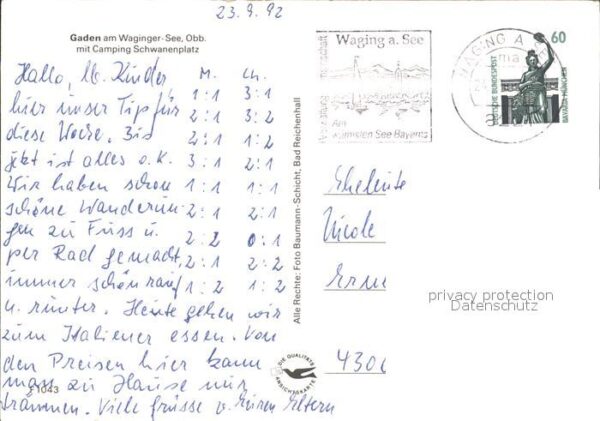 23.9.92
Gaden am Waginger-See, Obb.
mit Camping Schwanenplatz
Hallo, lb. Kinder M. Ch.
hier unser Tip für 1:1 3:1
diese Woche. Bis 2:1 3:2
jetzt ist alles o.K. 3:1 2:1
Wir haben schon 1:1 1:1
schöne Wanderun 2:1 2:1
gen zu Fuss u. 2:2 0:1
per Rad gemacht, 2:1 2:2
immer schön rauf 1:2 1:2
u. runter. Heute gehen wir
zum Italiener essen. Von
den Preisen hier kann
man zu Hause nur
träumen. Viele Grüsse v. Euren Eltern
51043
Alle Rechte: Foto Baumann-Schicht, Bad Reichenhall
DIE QUALITÄTS
ANSICHTSKARTE
Waging a. See
Am
wärmsten See Bayerns
WAGING A
60
DEUTSCHE BUNDESPOST
BAVARIA MÜNCHEN
Eheleute
Nicole
privacy protection
Datenschutz